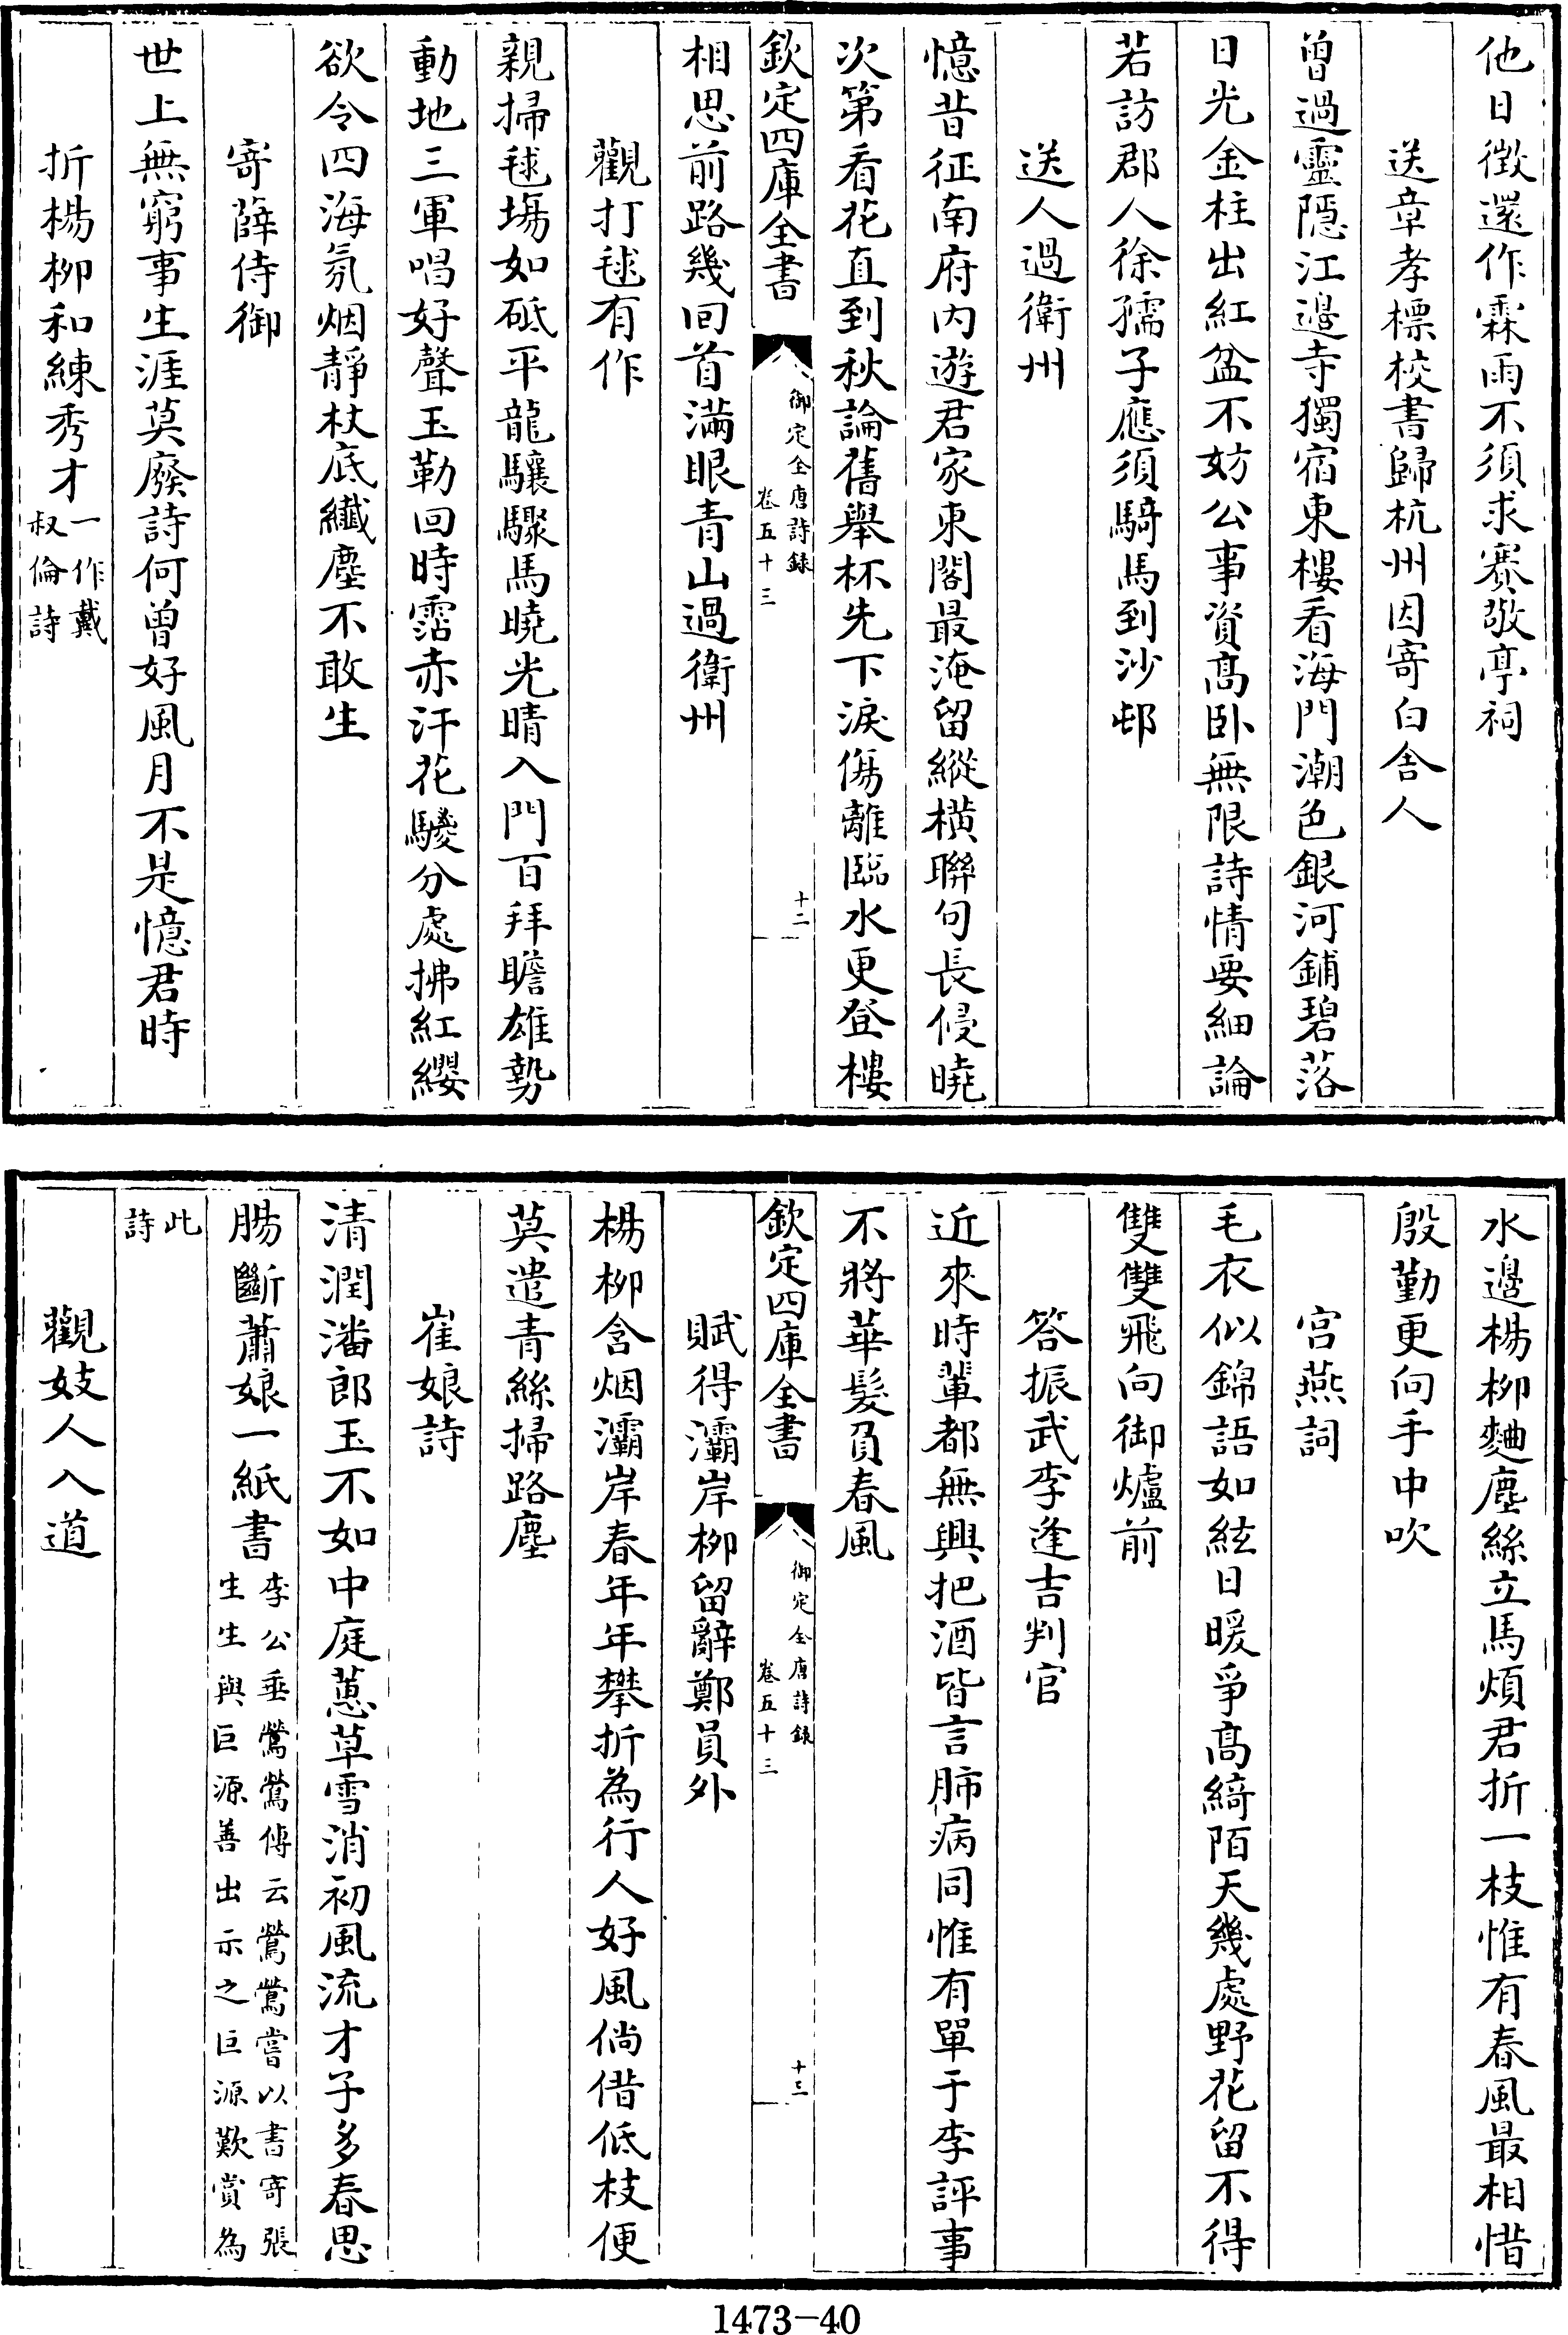 他日徴還作霖雨不須求賽敬亭祠
送章孝標校書歸杭州因寄白舎人
曽過靈隠江邉寺獨宿東樓看海門潮色銀河鋪碧落
日光金柱出紅盆不妨公事資髙卧無限詩情要細論
若訪郡人徐孺子應須騎馬到沙邨
送人過衛州
憶昔征南府内遊君家東閣最淹留縱横聯句長侵曉
次第看花直到秋論舊舉杯先下淚傷離臨水更登樓
欽定四庫全書
御定全唐詩録
卷五十三
十二
相思前路幾回首滿眼青山過衛州
觀打毬有作
親掃毬塲如砥平龍驤驟馬曉光晴入門百拜瞻雄勢
動地三軍唱好聲玉勒回時霑赤汗花騣分處拂紅纓
欲令四海氛烟靜杖底纎塵不敢生
寄薛侍御
世上無窮事生涯莫廢詩何曽好風月不是憶君時
折楊柳和練秀才一作戴
叔倫詩
水邉楊柳麯塵絲立馬煩君折一枝惟有春風最相惜
殷勤更向手中吹
宫燕詞
毛衣似錦語如絃日暖爭髙綺陌天幾處野花留不得
雙雙飛向御爐前
答振武李逢吉判官
近來時輩都無興把酒皆言肺病同惟有單于李評事
不將華髮負春風
欽定四庫全書
御定全唐詩録
卷五十三
十三
賦得灞岸柳留辭鄭員外
楊柳含烟灞岸春年年攀折為行人好風倘借低枝便
莫遣青絲掃路塵
崔娘詩
清潤潘郎玉不如中庭蕙草雪消初風流才子多春思
腸斷蕭娘一紙書李公垂鶯鶯傳云鶯鶯嘗以書寄張
生生與巨源善出示之巨源歎賞為
此
詩
觀妓人入道
1473-40